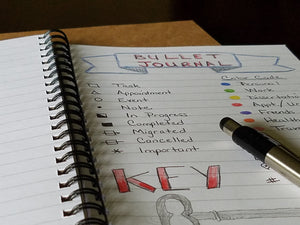 BULLET
JOURNAL
Task
Appointment
Event
Note
In Progress
Completed
Migrated
Cancelled
* Important
Color Code
Personal
Work
Dissertation
Appt/
Friends
Health
KEY
#